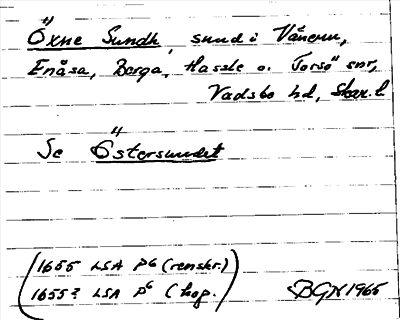 Öxne Sundh, sund i Vänern,
Enåsa, Berga, Hassle o. Torsö snr,
Vadsbo hd, Skar. l.
Se Östersundet
(1655 LSA P6 (renskr.)
1655? LSA P6 (kop.)
BGN 1965